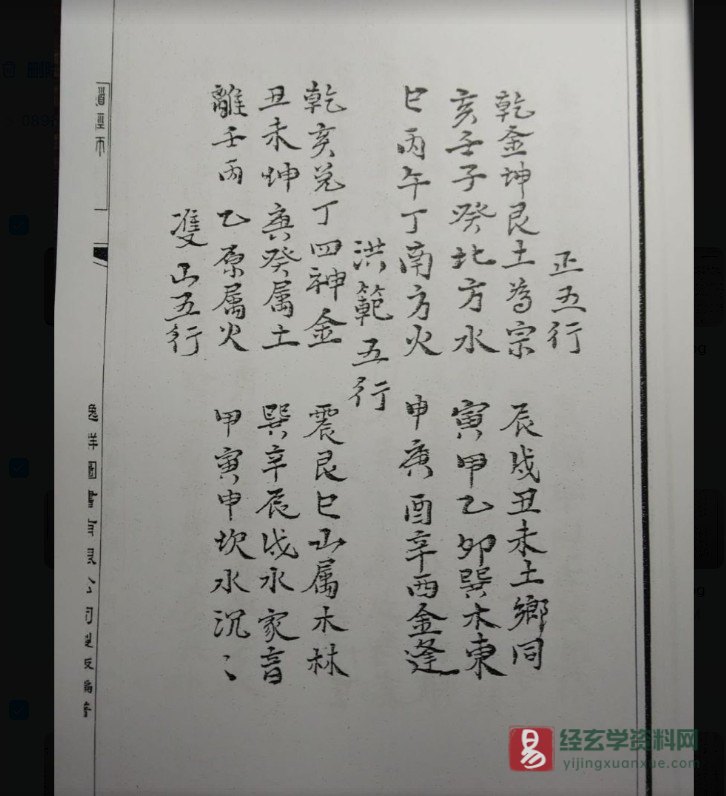 正五行
乾金坤艮土為宗 辰戌丑未土鄉同
亥壬子癸北方水 寅甲乙卯巽木東
巳丙午丁南方火 申庚酉辛西金逢
洪範五行
乾亥兌丁四神金 震艮巳山属木林
丑未坤庚癸属土 巽辛辰戌水家音
離壬丙乙原属火 甲寅申坎水沉〻
雙山五行
逸群圖書有限公司製版
易
经玄学资料网
yijingxuanxue.com